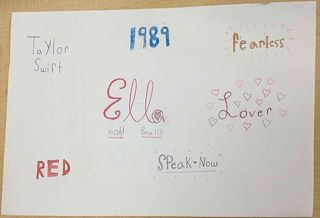 Taylor
Swift
1989
fearless
Ella
Lover
RED
Speak Now